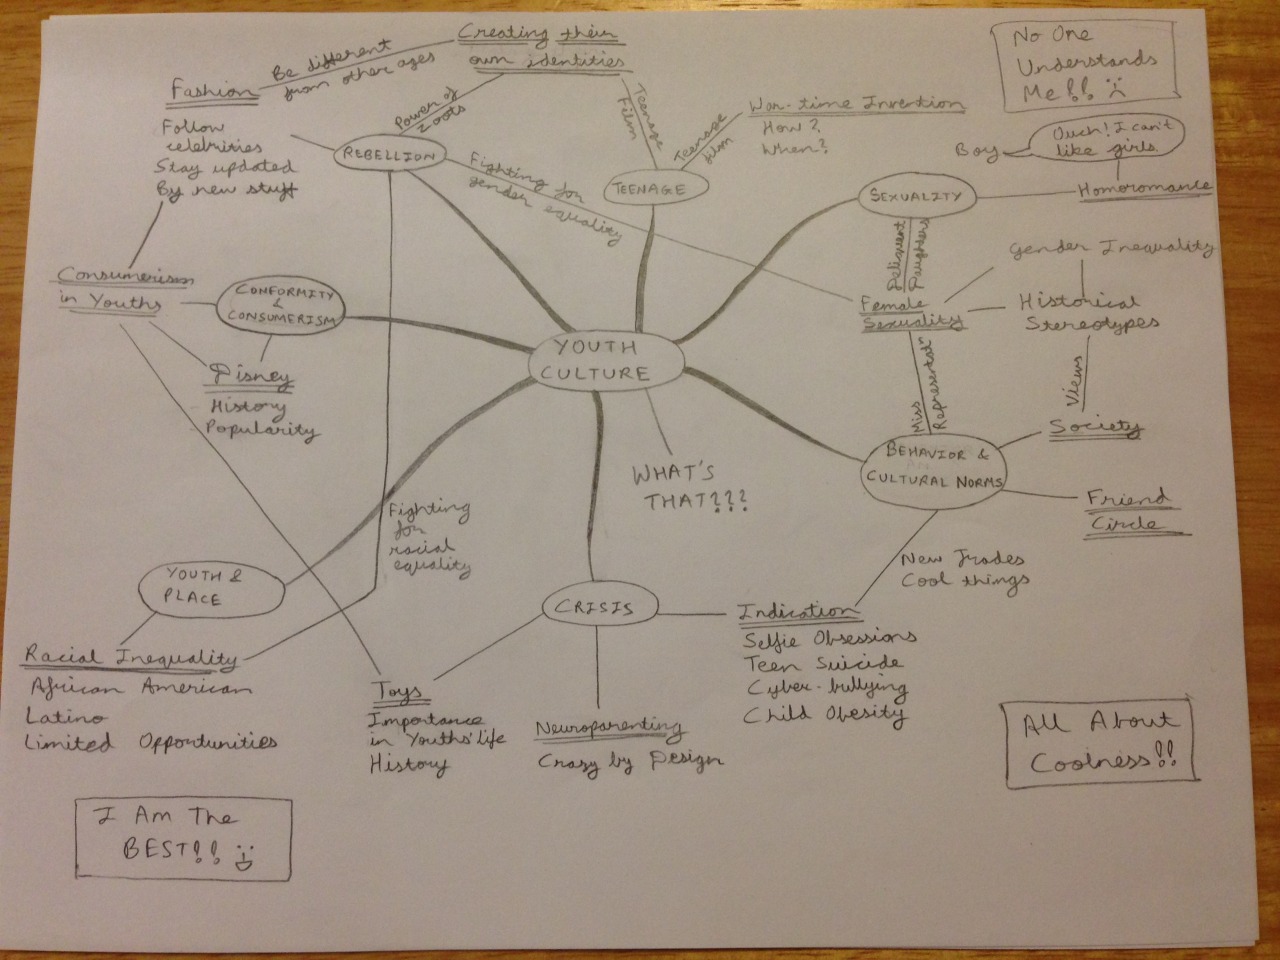 Creating their
own identities
Be different
from other ages
Fashion
Follow
celebrities
Stay updated
By new stuff
Power of
Zoots
REBELLION
Teenage
Film
Teenage
film
War-time Invention
How?
When?
TEENAGE
No One
Understands
Me!!
Boy
Ouch! I can't
like girls.
SEXUALITY
Homoromance
Fighting for
gender equality
Delinquent
Daughters
Gender Inequality
Female
Sexuality
Historical
Stereotypes
Consumerism
in Youths
CONFORMITY
&
CONSUMERISM
YOUTH
CULTURE
Disney
History
Popularity
Miss
Representatn
Views
Society
BEHAVIOR &
CULTURAL NORMS
WHAT'S
THAT???
Friend
Circle
Fighting
for
racial
equality
New Trades
Cool things
YOUTH &
PLACE
CRISIS
Racial Inequality
African American
Latino
Limited Opportunities
Toys
Importance
in Youths' life
History
Neuroparenting
Crazy by Design
Indication
Selfie Obsessions
Teen Suicide
Cyber-bullying
Child Obesity
All About
Coolness!!
I Am The
BEST!!